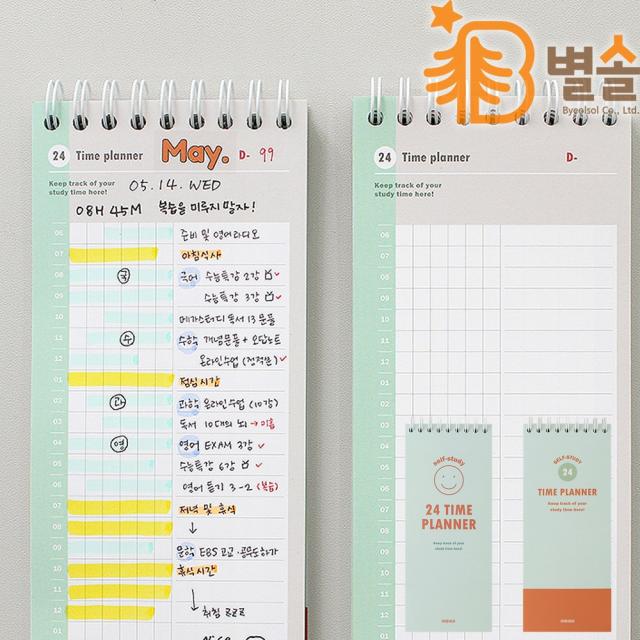 별솔
Byeolsol Co., Ltd.
24 Time planner May. D- 99
Keep track of your
study time here!
05.14. WED
08H 45M 복습을 미루지 말자!
06 준비 및 영어라디오
07 아침식사
08 국 국어 수능특강 2강
09 수능특강 3강
10 메가스터디 독서 13 문풀
11 수 수학 개념문풀 + 오답노트
12 온라인수업 (정적분)
01 점심시간
02 과 과학 온라인수업 (10강)
03 독서 10대의 뇌 → 미흡
04 영 영어 EXAM 3강
05 수능특강 6강
06 영어 듣기 3-2 (복습)
07 저녁 및 휴식
08
09 문학 EBS
10 휴식시간
11
12 취침 zzz
01
24 Time planner D-
Keep track of your
study time here!
06
07
08
09
10
11
12
01
02
03
04
05
06
07
08
09
10
11
12
01
self-study
24 TIME
PLANNER
Keep track of your
study time here!
SELF-STUDY
24
TIME PLANNER
Keep track of your
study time here!